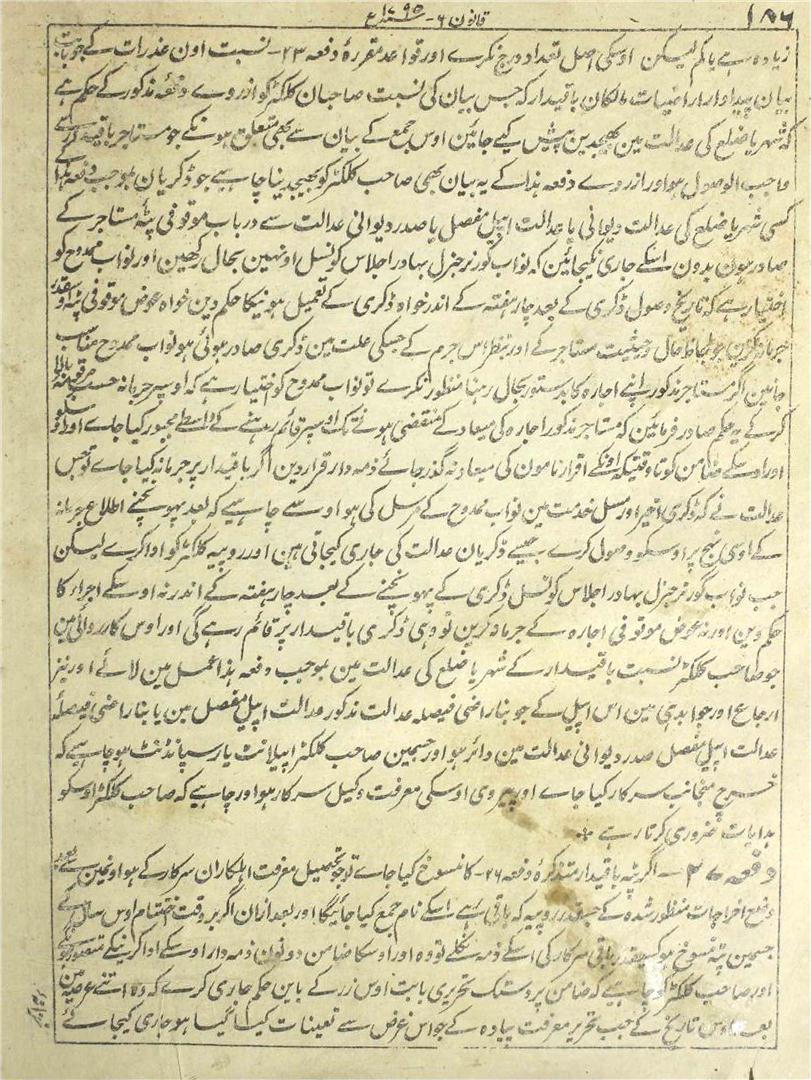 قانون ۶ - ۱۷۹۵ع
۱۸۶
زیادہ ہے یا کم لیکن اوسکی اصل تعداد درج نکرے اور قواعد مقررۂ دفعہ ۲۳ - نسبت اون عذرات کے جو بابت
بیان پیداوار اراضیات مالکان باقیدار کہ جس بیان کی نسبت صاحبان کلکٹر کو از روے دفعۂ مذکور کے حکم ہے
کہ شہر یا ضلع کی عدالت مین بھیجدین پیش کیے جائین اوس جمع کے بیان سے بھی متعلق ہونگے جو مستاجر باقیدار سے
واجب الوصول ہو اور از روے دفعہ ہذا کے یہ بیان بھی صاحب کلکٹر کو بھیجدینا چاہیے جو ڈکریان بموجب دفعہ ہذا
کسی شہر یا ضلع کی عدالت دیوانی یا عدالت اپیل مفصل یا صدر دیوانی عدالت سے درباب موقوفی پٹہ مستاجر کے
صادر ہون بدون اسکے جاری نکیجائین کہ نواب گورنر جنرل بہادر اجلاس کونسل اونہین بحال رکھین اور نواب ممدوح کو
اختیار ہے کہ تاریخ وصول ڈکری کے بعد چار ہفتہ کے اندر خواہ ڈکری کے تعمیل ہونیکا حکم دین خواہ عوض موقوفی پٹہ
جرمانہ کرین جو بلحاظ حال و حیثیت مستاجر کے اور بنظر اس جرم کے جسکی علت مین ڈکری صادر ہوئی ہو نواب ممدوح مناسب
جانین اگر مستاجر مذکور اپنے اجارہ کا بدستور بحال رہنا منظور نکرے تو نواب ممدوح کو اختیار ہے کہ اوسپر جرمانہ حسب
کرکے یہ حکم صادر فرمائین کہ مستاجر مذکور اجارہ کی میعاد کے منقضی ہونے تک اوسپر قائم رہنے کے واسطے مجبور کیا جاے اور
اور اوسکے ضامن کو تاوقتیکہ اونکے اقرارنامون کی میعاد نہ گذر جاے ذمہ دار قرار دین اگر باقیدار پر جرمانہ کیا جاے تو جس
عدالت نے کہ ڈکری اخیر اور مسل خدمت مین نواب ممدوح کے مرسل کی ہو اوسے چاہیے کہ بعد پہونچنے اطلاع جرمانہ
کے اوسی نہج پر اوسکو وصول کرے جیسے ڈکریان عدالت کی جاری کیجاتی ہین اور روپیہ کلکٹر کو ادا کرے لیکن
جب نواب گورنر جنرل بہادر اجلاس کونسل ڈکری کے پہونچنے کے بعد چار ہفتہ کے اندر نہ اوسکے اجرا کا
حکم دین اور نہ بعوض موقوفی اجارہ کے جرمانہ کرین تو وہی ڈکری باقیدار پر قائم رہے گی اور اوس کارروائی مین
جو صاحب کلکٹر نسبت باقیدار کے شہر یا ضلع کی عدالت مین بموجب دفعہ ہذا عمل مین لائے اور نیز
ارجاع اور جوابدہی مین اس اپیل کے جو بناراضی فیصلہ عدالت مذکور عدالت اپیل مفصل مین یا بناراضی فیصلہ
عدالت اپیل مفصل صدر دیوانی عدالت مین دائر ہو اور جسمین صاحب کلکٹر اپیلانٹ یا رسپانڈنٹ ہو چاہیے کہ
خرچ منجانب سرکار کیا جاے اور پیروی اوسکی معرفت وکیل سرکار ہو اور چاہیے کہ صاحب کلکٹر اوسکو
ہدایات ضروری کرتا رہے *
دفعہ ۲۷ - اگر پٹہ باقیدار متذکرۂ دفعہ ۲۶ - کا منسوخ کیا جاے تو جو تحصیل معرفت اہلکاران سرکار کے ہو اونمین سے
دفع اخراجات منظور شدہ کے جسقدر روپیہ کہ باقی رہے اسکے نام جمع کیا جائیگا اور بعد ازان اگر بروقت اختتام اوس سال کے
جسمین پٹہ منسوخ ہو کسیقدر باقی سرکار کی اسکے ذمہ نکلے تو وہ اور اوسکا ضامن دونون ذمہ دار اوسکے ادا کرنیکے متصور ہونگے
اور صاحب کلکٹر کو چاہیے کہ ضامن پر دستک تحریری بابت اوس زر کے باین حکم جاری کرے کہ وہ اتنے عرصہ مین
بعد اوس تاریخ کے جب تحریر معرفت پیادہ کے جو اس غرض سے تعینات کیا گیا ہو جاری کیجاے